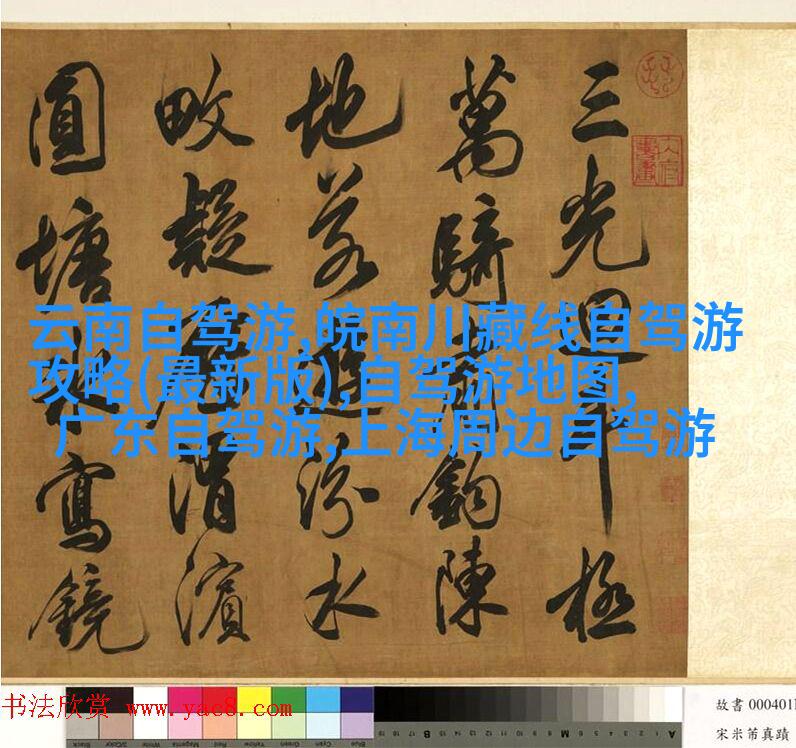 三光迴斗極
萬騎鈎陳
地若遊汾水
畋疑渭濱
圓塘寫鏡
云南自驾游,皖南川藏线自驾游
攻略(最新版),自驾游地图,
广东自驾游,上海周边自驾游
书法欣赏 www.yac8.com
故書 000401
宋米芾真蹟